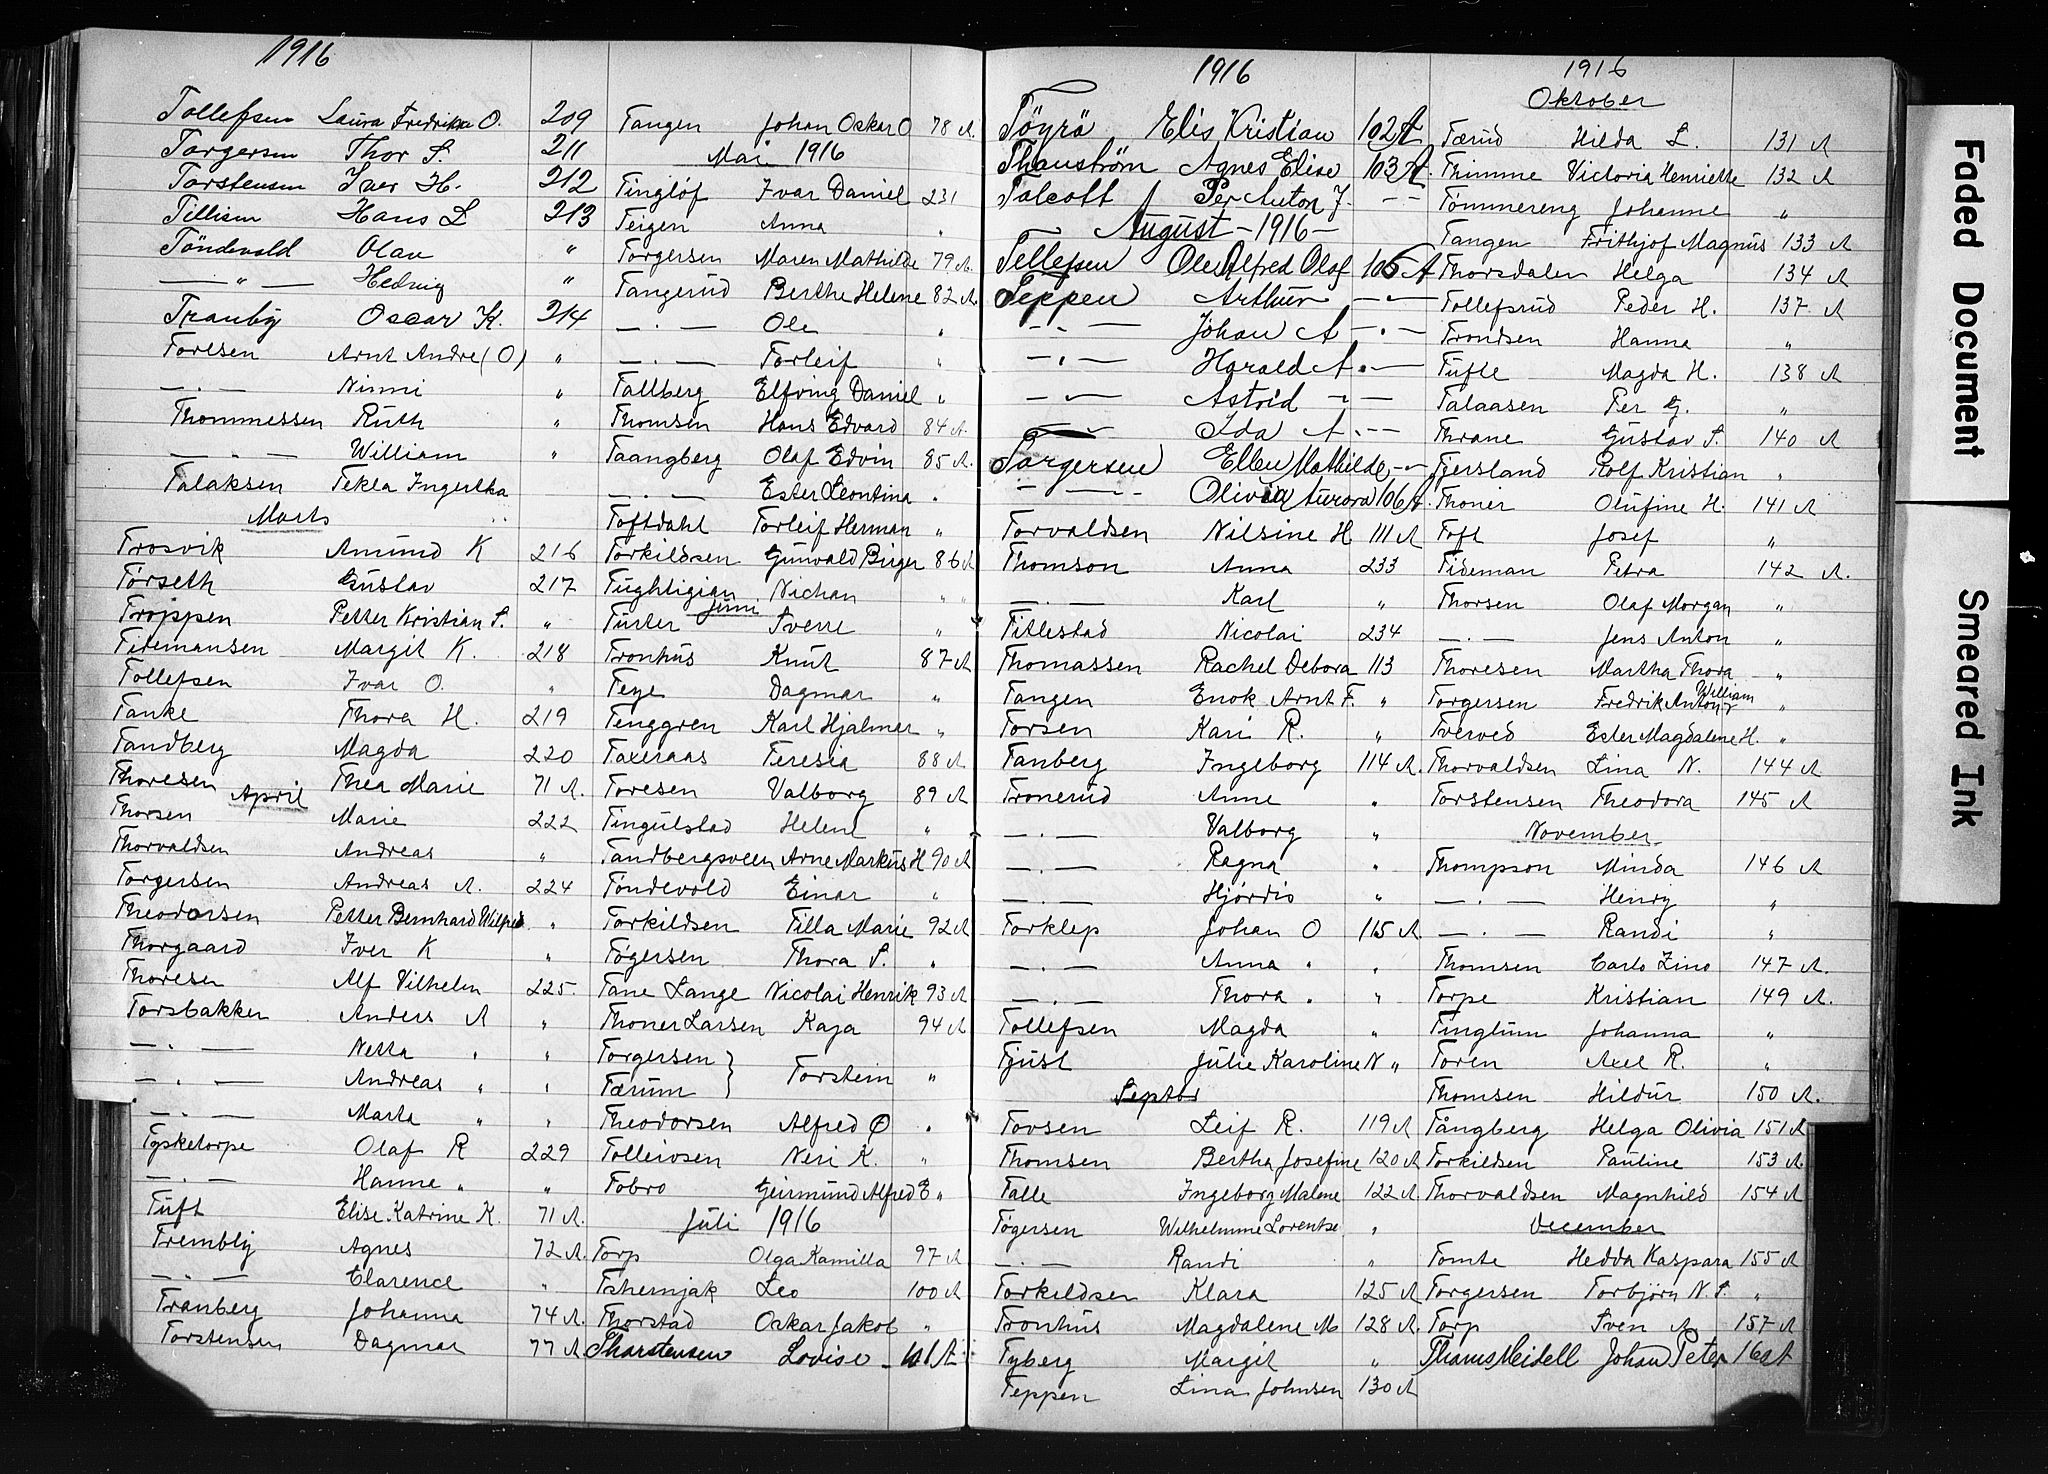 1916
Tollefsen Laura Fredrikke O. 209
Torgersen Thor S. 211
Torstensen Iver H. 212
Tillisen Hans L 213
Töndevold Olav "
— " — Hedvig "
Tranby Oscar K. 214
Toresen Arnt Andre (O) "
— . — Ninni "
Thommessen Ruth "
— . — William "
Talaksen Tekla Ingertha
Marts
Trosvik Amund K 216
Tørseth Gustav 217
Troppen Petter Kristian S. "
Tidemansen Margit K. 218
Tollefsen Ivar O. "
Tanke Thora H. 219
Tandberg Magda 220
Thoresen Thea Marie 71 A.
April
Thorsen Marie 222
Thorvaldsen Andreas "
Torgersen Andreas A. 224
Theodorsen Petter Bernhard Wilfred "
Thorgaard Iver K "
Thoresen Alf Vilhelm 225.
Torsbakken Anders A "
— . — Netta " "
— . — Andreas " "
— . — Marta " "
Tysketorpe Olaf R 229
— . — Hanne " "
Tuft Elise Katrine K. 71 A.
Trembly Agnes 72 A.
— . — Clarence "
Tranberg Johanna 74 A.
Torstensen Dagmar 77 A
Tangen Johan Oskar O 78 A.
Mai 1916
Tinglöf Ivar Daniel 231
Teigen Anna "
Torgersen Maren Mathilde 79 A.
Tangerud Berthe Helene 82 A.
— . — Ole "
— . — Torleif "
Tallberg Elfving Daniel "
Thomsen Hans Edvard 84 A.
Taangberg Olaf Edvin 85 A.
— . — Ester Leontina "
Toftdahl Torleif Herman "
Torkildsen Gunvald Birger 86 A
Tughligian Nichan " "
Juni
Turter Sverre "
Tronhus Knut 87 A
Teye Dagmar "
Tenggren Karl Hjalmar "
Taxeraas Teresia 88 A
Toresen Valborg 89 A
Tingulstad Helene "
Tandbergsveen Arne Markus H 90 A
Töndevold Einar "
Torkildsen Tilla Marie 92 A
Tøgersen Thora S. "
Tane Lange Nicolai Henrik 93 A
Thoner Larsen Kaja 94 A
Torgersen }
Tærum } Torstein "
Theodorsen Alfred O "
Tolleivsen Neri K. "
Tobro Geirmund Alfred E "
Juli 1916
Torp Olga Kamilla 97 A
Tshernjak Leo 100 A
Thorstad Oskar Jakob "
Tharstensen Lovise - 101 A
1916
Töyrä Elis Kristian 102 A
Thanström Agnes Elise 103 A.
Talcott Per Anton J. - -
August - 1916 -
Tellefsen Ole Alfred Olaf 105 A
Teppen Arthur — . —
— . — Johan A — . —
— . — Harald A . —
— . — Astrid - . —
— . — Ida A . - -
Torgersen Ellen Mathilde - . -
— . — Olivia Aurora 106 A.
Torvaldsen Nilsine H 111 A
Thomson Anna 233
— . — Karl "
Titlestad Nicolai 234
Thomassen Rachel Debora 113
Tangen Enok Arnt F. "
Torsen Kari R. "
Tanberg Ingeborg 114 A.
Tronerud Anne "
— . — Valborg "
— . — Ragna "
— . — Hjördis "
Torklep Johan O 115 A
— . — Anna " "
— . — Thora " "
Tollefsen Magda "
Tjust Julie Karoline N "
Septbr
Tovsen Leif R. 119 A
Thomsen Bertha Josefine 120 A
Talle Ingeborg Malene 122 A
Tøgersen Wilhelmine Lorentse "
— . — Randi "
Torkildsen Klara 125 A
Tronhus Magdalene M 128 A.
Tyberg Margit "
Teppen Lina Johnsen 130 A
1916
Oktober
Tærud Hilda L. 131 A
Thimme Victoria Henriette 132 A
Tömmereng Johanne "
Tangen Frithjof Magnus 133 A
Thorsdalen Helga 134 A
Tollefsrud Peder H. 137 A
Trondsen Hanna "
Tufte Magda H. 138 A
Talaasen Per G. "
Thrane Gustav S. 140 A
Tjersland Rolf Kristian "
Thoner Olufine H. 141 A
Toft Josef "
Tideman Petra 142 A.
Thorsen Olaf Morgan "
— . — Jens Anton "
Thoresen Martha Thora "
Torgersen Fredrik Anton William "
Tverved Ester Magdalene H. "
Thorvaldsen Lina N. 144 A
Torstensen Theodora 145 A
November
Thompson Minda 146 A
— . — Henry "
— . — Randi "
Thomsen Carlo Zino 147 A.
Torpe Kristian 149 A.
Tinglum Johanna "
Toren Axel R. "
Thomsen Hildur 150 A.
Tångberg Helga Olivia 151 A
Torkildsen Pauline 153 A.
Thorvaldsen Magnhild 154 A
December
Tomte Hedda Kaspara 155 A
Torgersen Torbjörn N. S. "
Torp Sven A. 157 A
Thams Meidell Johan Peter 160 A
Faded Document
Smeared Ink